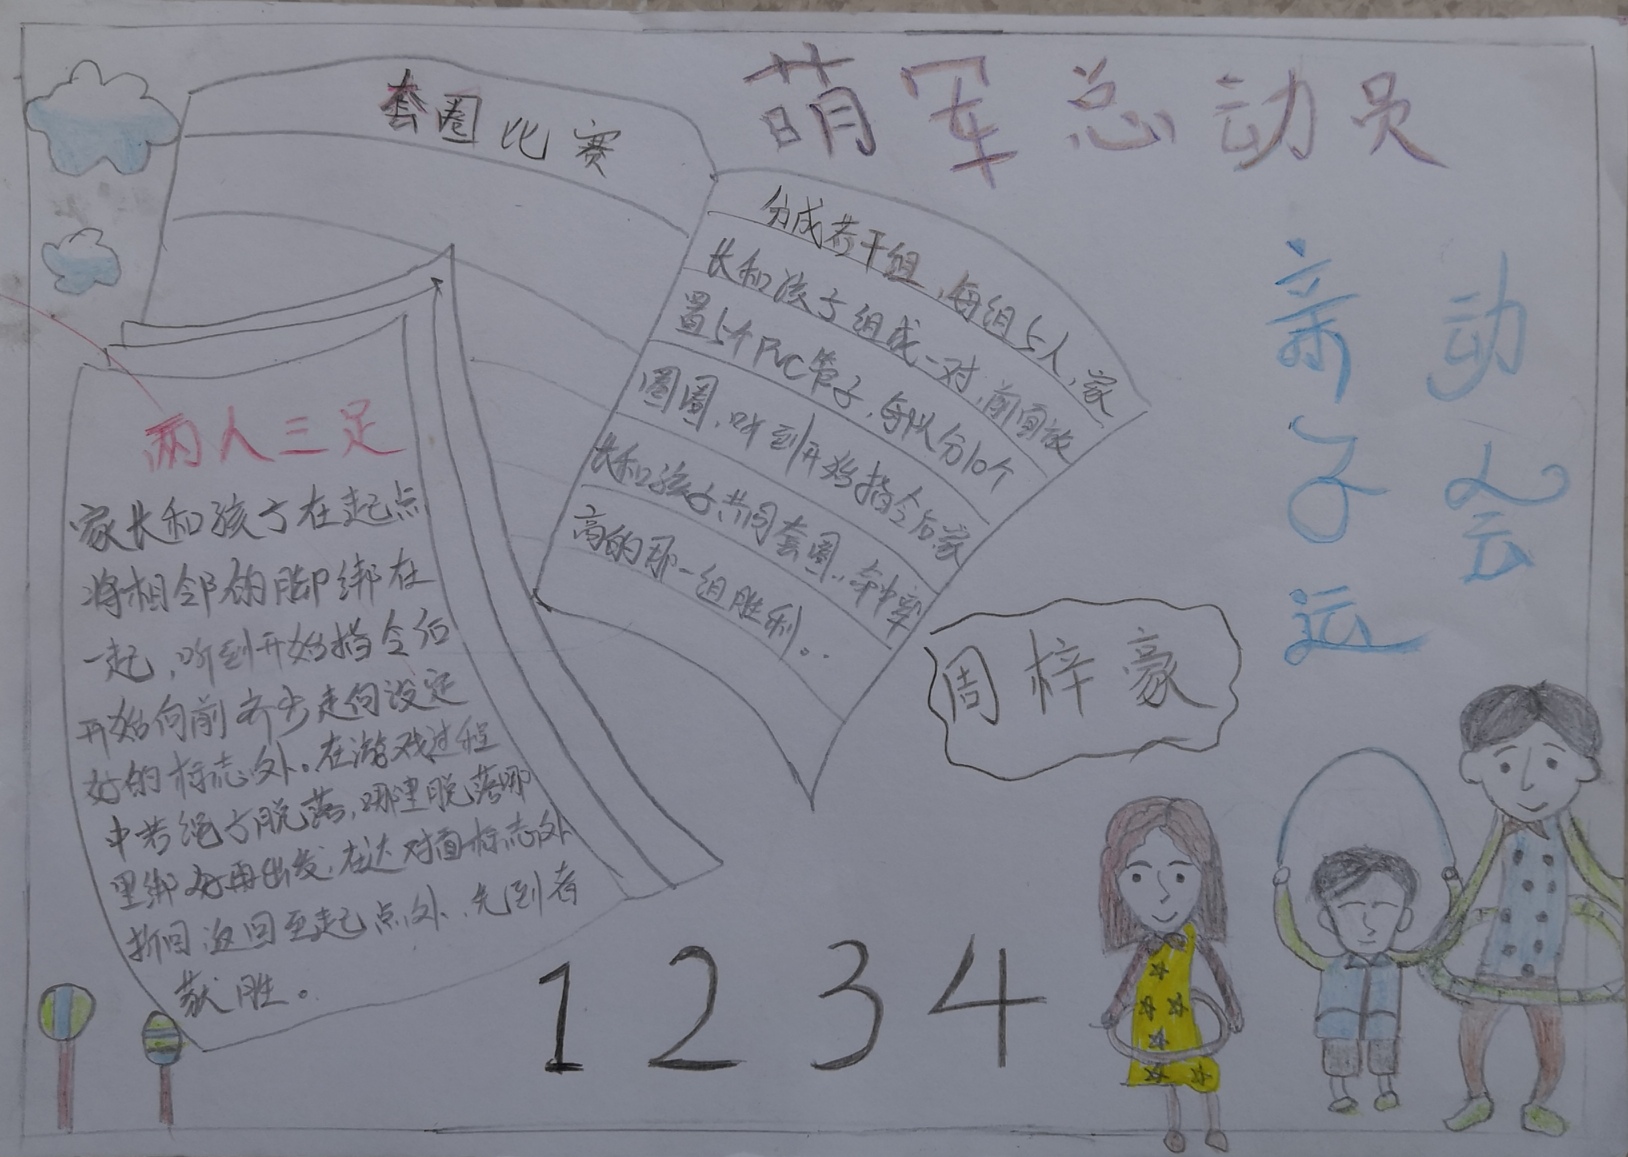 萌军总动员
亲子运
动会
套圈比赛
分成若干组，每组5人，家
长和孩子组成一对，前面放
置5个PVC管子，每队分10个
圈圈，听到开始指令后家
长和孩子共同套圈，命中率
高的那一组胜利。..
两人三足
家长和孩子在起点
将相邻的脚绑在
一起，听到开始指令后
开始向前齐步走向设定
好的标志处。在游戏过程
中若绳子脱落，哪里脱落哪
里绑好再出发，在达对面标志处
折回返回至起点处，先到者
获胜。
周梓豪
1 2 3 4